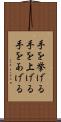 手を挙げる
手を上げる
手をあげる